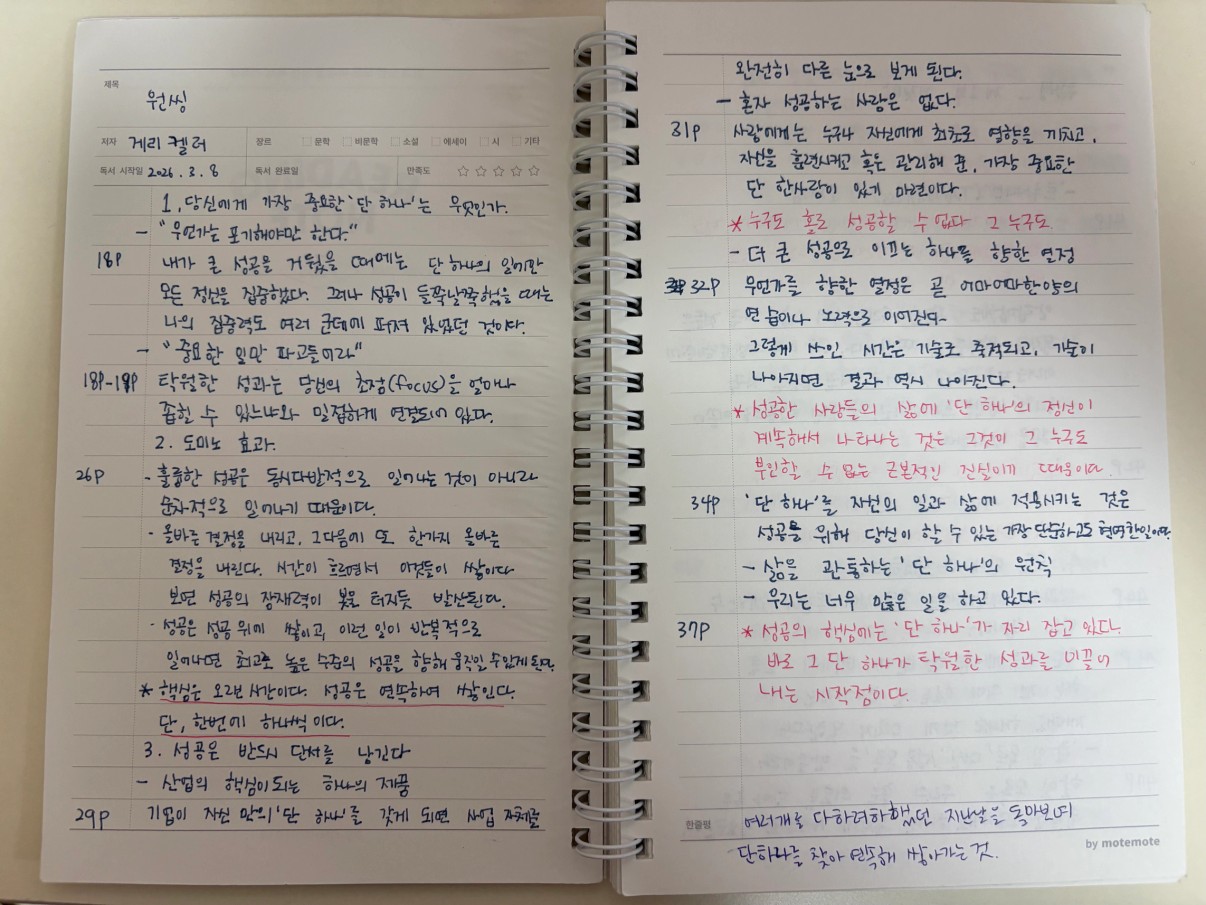 제목
원씽
저자 게리 켈러 장르 문학 비문학 소설 에세이 시 기타
독서 시작일 2026. 3. 8 독서 완료일 만족도
1. 당신에게 가장 중요한 '단 하나'는 무엇인가.
- "무언가는 포기해야만 한다."
18P 내가 큰 성공을 거뒀을 때에는 단 하나의 일에만
모든 정신을 집중했다. 그러나 성공이 들쭉날쭉했을 때는
나의 집중력도 여러 군데에 퍼져 있었던 것이다.
- "중요한 일만 파고들어라"
18P-19P 탁월한 성과는 당신의 초점(focus)을 얼마나
좁힐 수 있느냐와 밀접하게 연결되어 있다.
2. 도미노 효과.
26P - 훌륭한 성공은 동시다발적으로 일어나는 것이 아니라
순차적으로 일어나기 때문이다.
- 올바른 결정을 내리고, 그다음에 또 한가지 올바른
결정을 내린다. 시간이 흐르면서 이것들이 쌓이다
보면 성공의 잠재력이 봇물 터지듯 발산된다.
- 성공은 성공 위에 쌓이고, 이런 일이 반복적으로
일어나면 최고로 높은 수준의 성공을 향해 움직일 수 있게 된다.
* 핵심은 오랜 시간이다. 성공은 연속하여 쌓인다.
단, 한번에 하나씩 이다.
3. 성공은 반드시 단서를 남긴다
- 산업의 핵심이 되는 하나의 제품
29P 기업이 자신 만의 '단 하나'를 갖게 되면 사업 자체를
완전히 다른 눈으로 보게 된다.
- 혼자 성공하는 사람은 없다.
31P 사람에게는 누구나 자신에게 최초로 영향을 끼치고,
자신을 훈련시키고 혹은 관리해 준, 가장 중요한
단 한사람이 있기 마련이다.
* 누구도 홀로 성공할 수 없다 그 누구도.
- 더 큰 성공으로 이끄는 하나를 향한 열정
32P 무언가를 향한 열정은 곧 어마어마한 양의
연습이나 노력으로 이어진다
그렇게 쓰인 시간은 기술로 축적되고, 기술이
나아지면 결과 역시 나아진다.
* 성공한 사람들의 삶에 '단 하나'의 정신이
계속해서 나타나는 것은 그것이 그 누구도
부인할 수 없는 근본적인 진실이기 때문이다.
34P '단 하나'를 자신의 일과 삶에 적용시키는 것은
성공을 위해 당신이 할 수 있는 가장 단순하고도 현명한일이다.
- 삶을 관통하는 '단 하나'의 원칙
- 우리는 너무 많은 일을 하고 있다.
37P * 성공의 핵심에는 '단 하나'가 자리 잡고 있다.
바로 그 단 하나가 탁월한 성과를 이끌어
내는 시작점이다.
한줄평 여러개를 다하려하했던 지난날을 돌아보며
단하나를 찾아 연속해 쌓아가는 것.
by motemote